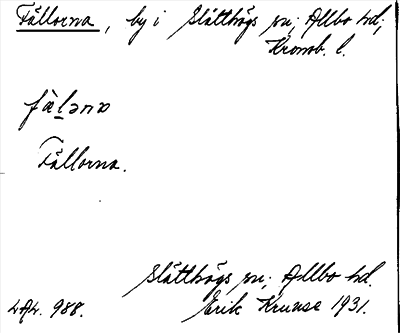 Fällorna, by i Slätthögs sn; Allbo hd;
Kronob. l.
fæ̀lɔna
Fällorna.
Slätthögs sn; Allbo hd.
LAL. 988. Erik Kruuse 1931.